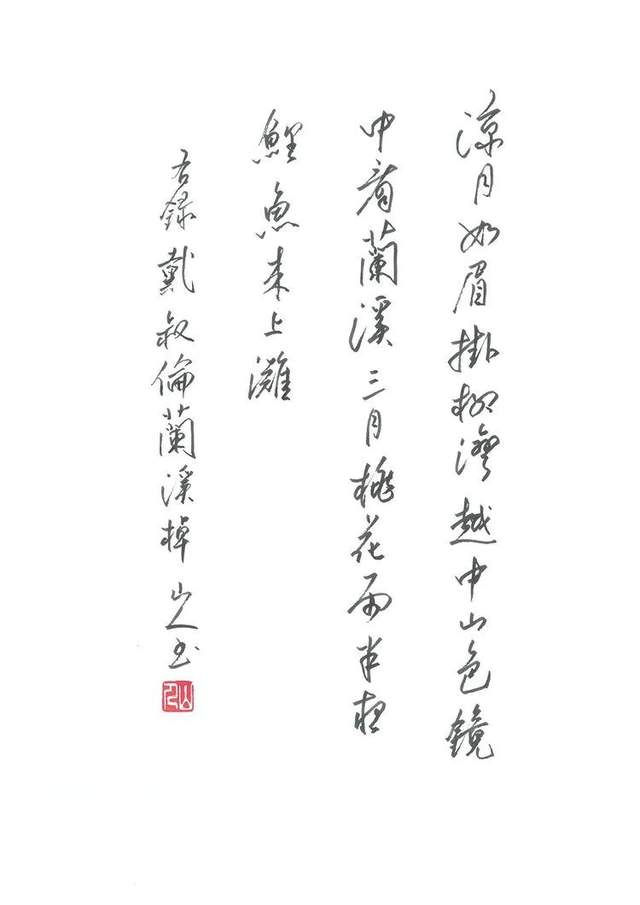 涼月如眉掛柳灣越中山色鏡
中看蘭溪三月桃花雨半夜
鯉魚來上灘
右錄戴叔倫蘭溪棹 山人书
山人